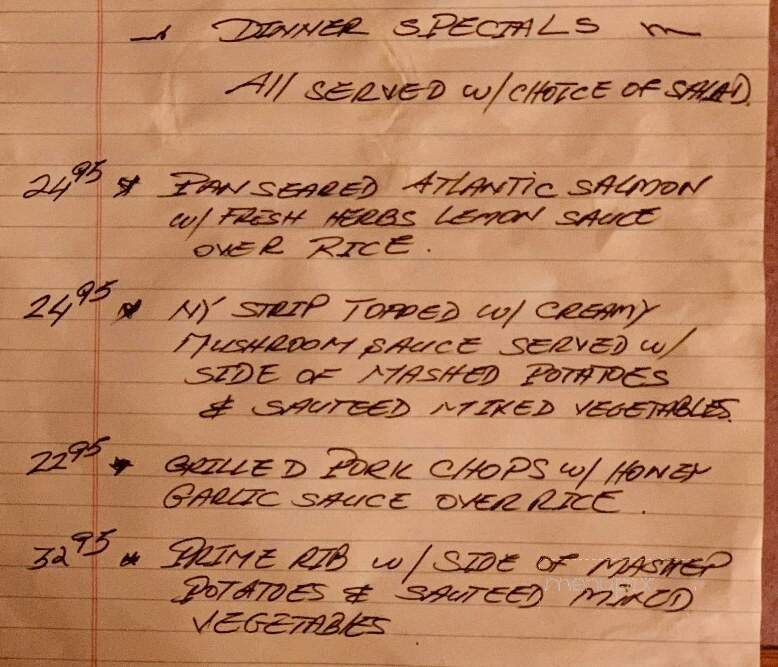 DINNER SPECIALS
All SERVED W/CHOICE OF SALAD.
24 95 * PAN SEARED ATLANTIC SALMON
W/ FRESH HERBS LEMON SAUCE
OVER RICE.
24 95 * NY STRIP TOPPED W/ CREAMY
MUSHROOM SAUCE SERVED W/
SIDE OF MASHED POTATOES
& SAUTEED MIXED VEGETABLES.
22 95 * GRILLED PORK CHOPS W/ HONEY
GARLIC SAUCE OVER RICE.
32 95 * PRIME RIB W/ SIDE OF MASHED
POTATOES & SAUTEED MIXED
VEGETABLES
menupix